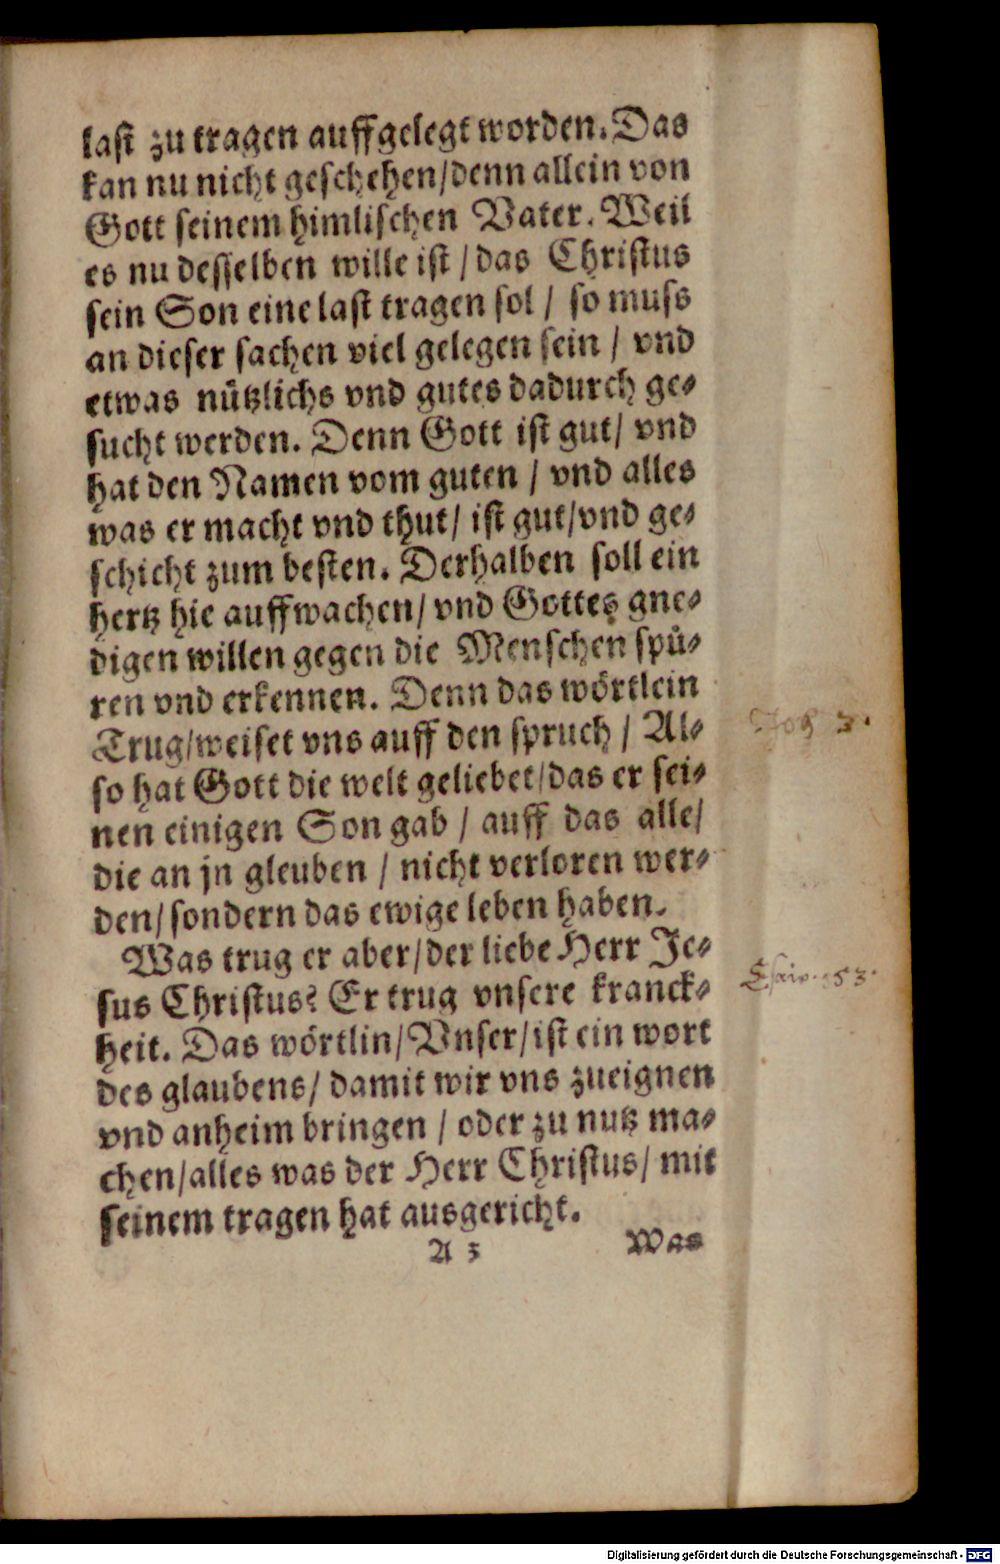 last zu tragen auffgelegt worden. Das
kan nu nicht geschehen/denn allein von
Gott seinem himlischen Vater. Weil
es nu desselben wille ist / das Christus
sein Son eine last tragen sol / so muss
an dieser sachen viel gelegen sein / vnd
etwas nuͤtzlichs vnd gutes dadurch ge⸗
sucht werden. Denn Gott ist gut/ vnd
hat den Namen vom guten / vnd alles
was er macht vnd thut/ ist gut/vnd ge⸗
schicht zum besten. Derhalben soll ein
hertz hie auffwachen/ vnd Gottes gne⸗
digen willen gegen die Menschen spuͤ⸗
ren vnd erkennen. Denn das woͤrtlein
Trug/weiset vns auff den spruch / Al⸗
so hat Gott die welt geliebet/das er sei⸗
nen einigen Son gab / auff das alle/
die an jn gleuben / nicht verloren wer⸗
den/sondern das ewige leben haben.
Was trug er aber/der liebe Herr Je⸗
sus Christus? Er trug vnsere kranck⸗
heit. Das woͤrtlin/Vnser/ist ein wort
des glaubens/ damit wir vns zueignen
vnd anheim bringen / oder zu nutz ma⸗
chen/alles was der Herr Christus/ mit
seinem tragen hat ausgericht.
A 3 Was
Joh 3.
Esaiæ 53.
Digitalisierung gefördert durch die Deutsche Forschungsgemeinschaft - DFG